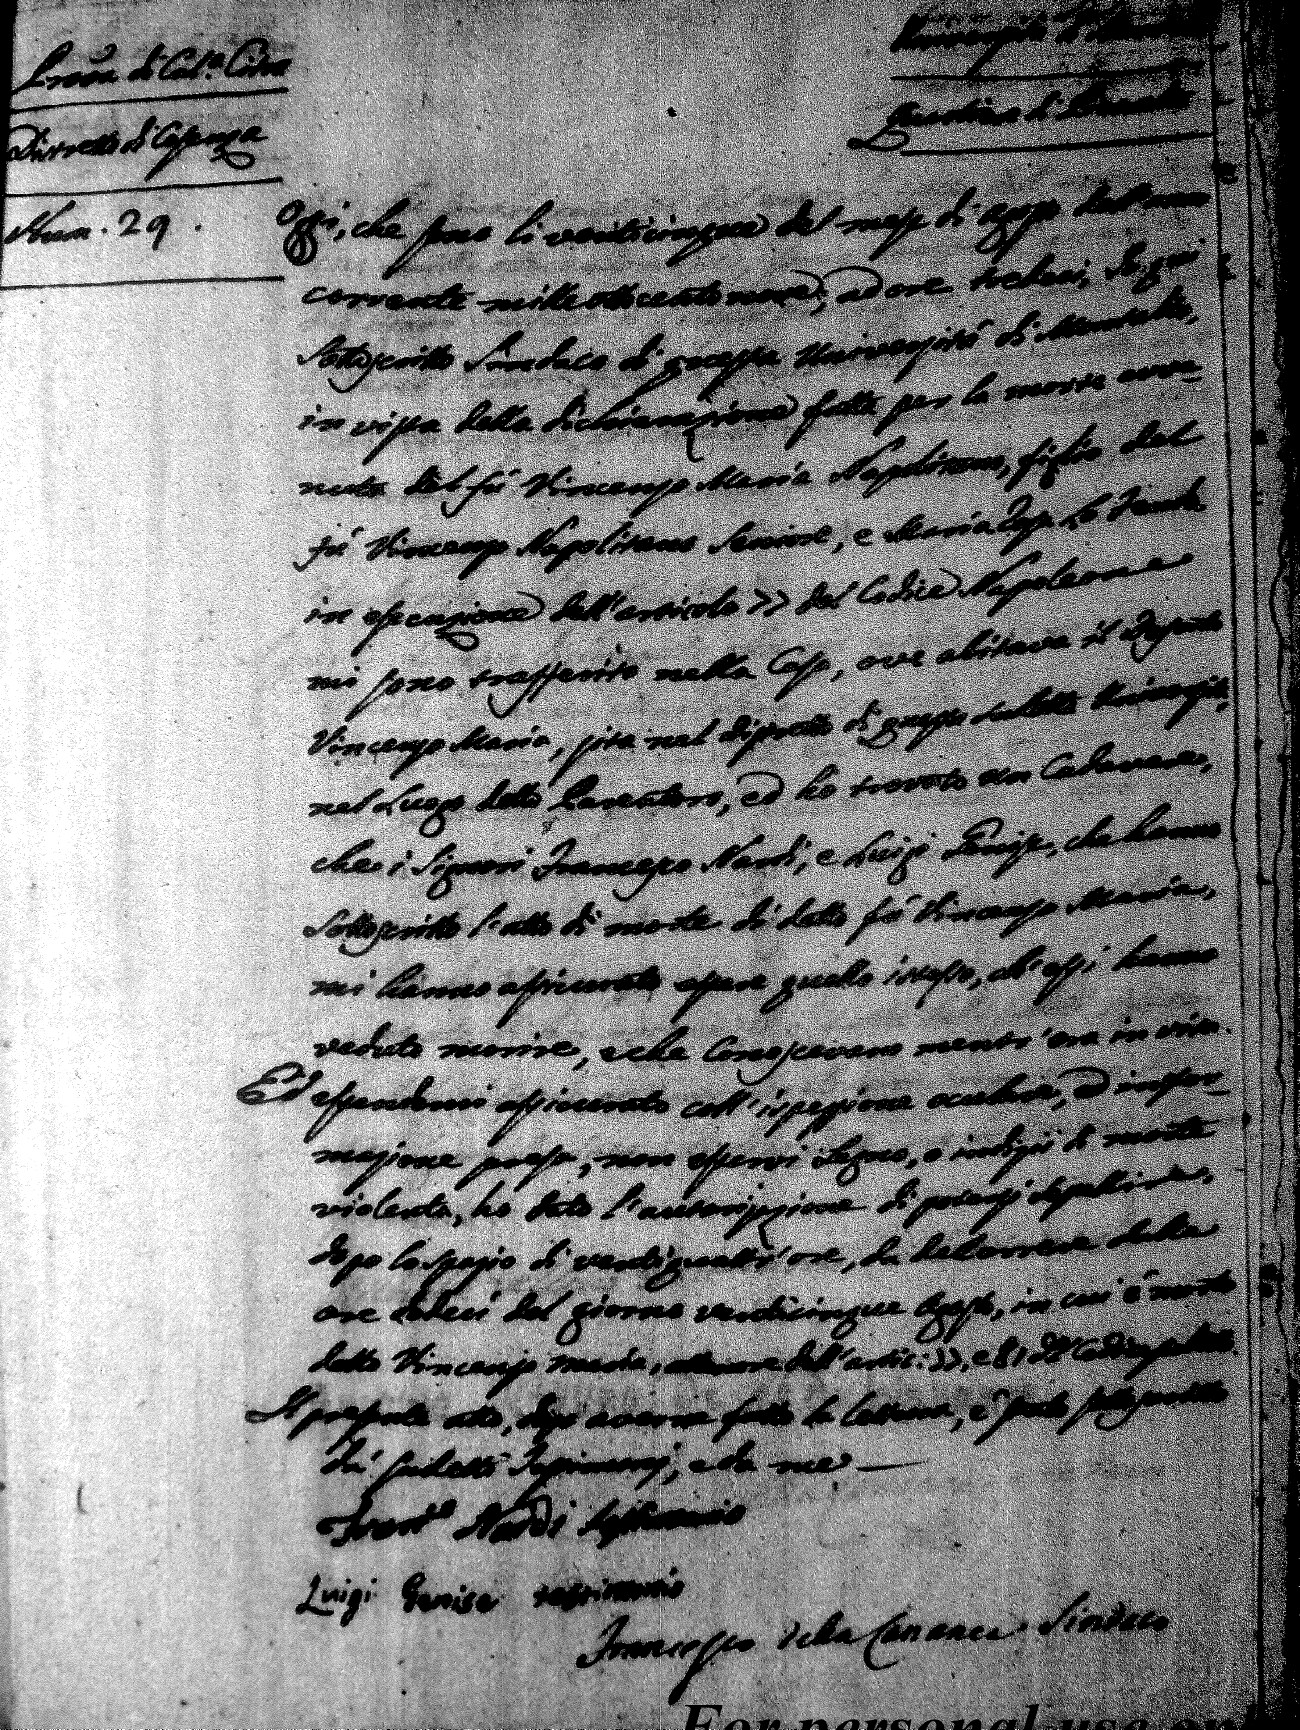 Prov.a di Cal.a Citra
Distretto di Cosenza
Num. 29.
Università di
di
Oggi, che sono li venticinque del mese di agosto dell'anno
corrente mille ottocento nove, ad ore tredeci, Io qui
Sottoscritto Sindaco di questa Università di
in vista della dichiarazione fatta per la morte avve-
nuta del fù Vincenzo Maria Napolitano, figlio del
fù Vincenzo Napolitano Seniore, e Maria
in esecuzione dell'articolo 77 del Codice Napoleone
mi sono trasferito nella Casa, ove abitava il
Vincenzo Maria, sita nel distretto di questa sudetta Università
nel Luogo detto, ed ho trovato un Cadavere,
che i Signori Francesco Nardi, e Luigi Genise, che hanno
Sottoscritto l'atto di morte di detto fù Vincenzo Maria,
mi hanno assicurato essere quello istesso, ch'essi hanno
veduto morire, e che Conoscevano mentr'era in vita.
Ed essendomi assicurato coll'ispezzione oculare, ed infor-
mazione presa, non esservi Segno, o indizii di morte
violenta, ho dato l'autorizzione di potersi sepellire,
dopo lo spazio di ventiquattr'ore, da decorrere dalle
ore del giorno venticinque Agosto, in cui è morto
detto Vincenzo Maria, a tenore dell'artic: 77, e 81 del Codice
Il presente atto, dopo averne fatto la lettura, è stato sottoscritto
da' sudetti Testimonj, e da me
Fran.co Nardi testimonio
Luigi Genise testimonio
Francesco della Cananea Sindaco
For personal use onl